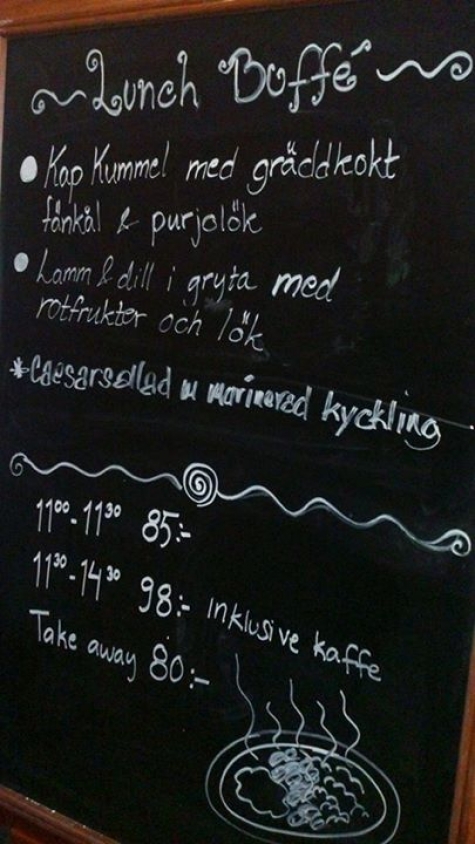 Lunch Buffé
Kap Kummel med gräddkokt
fänkål & purjolök
Lamm & dill i gryta med
rotfrukter och lök
*Caesarsallad m marinerad kyckling
11⁰⁰-11³⁰ 85:-
11³⁰-14³⁰ 98:- inklusive kaffe
Take away 80:-